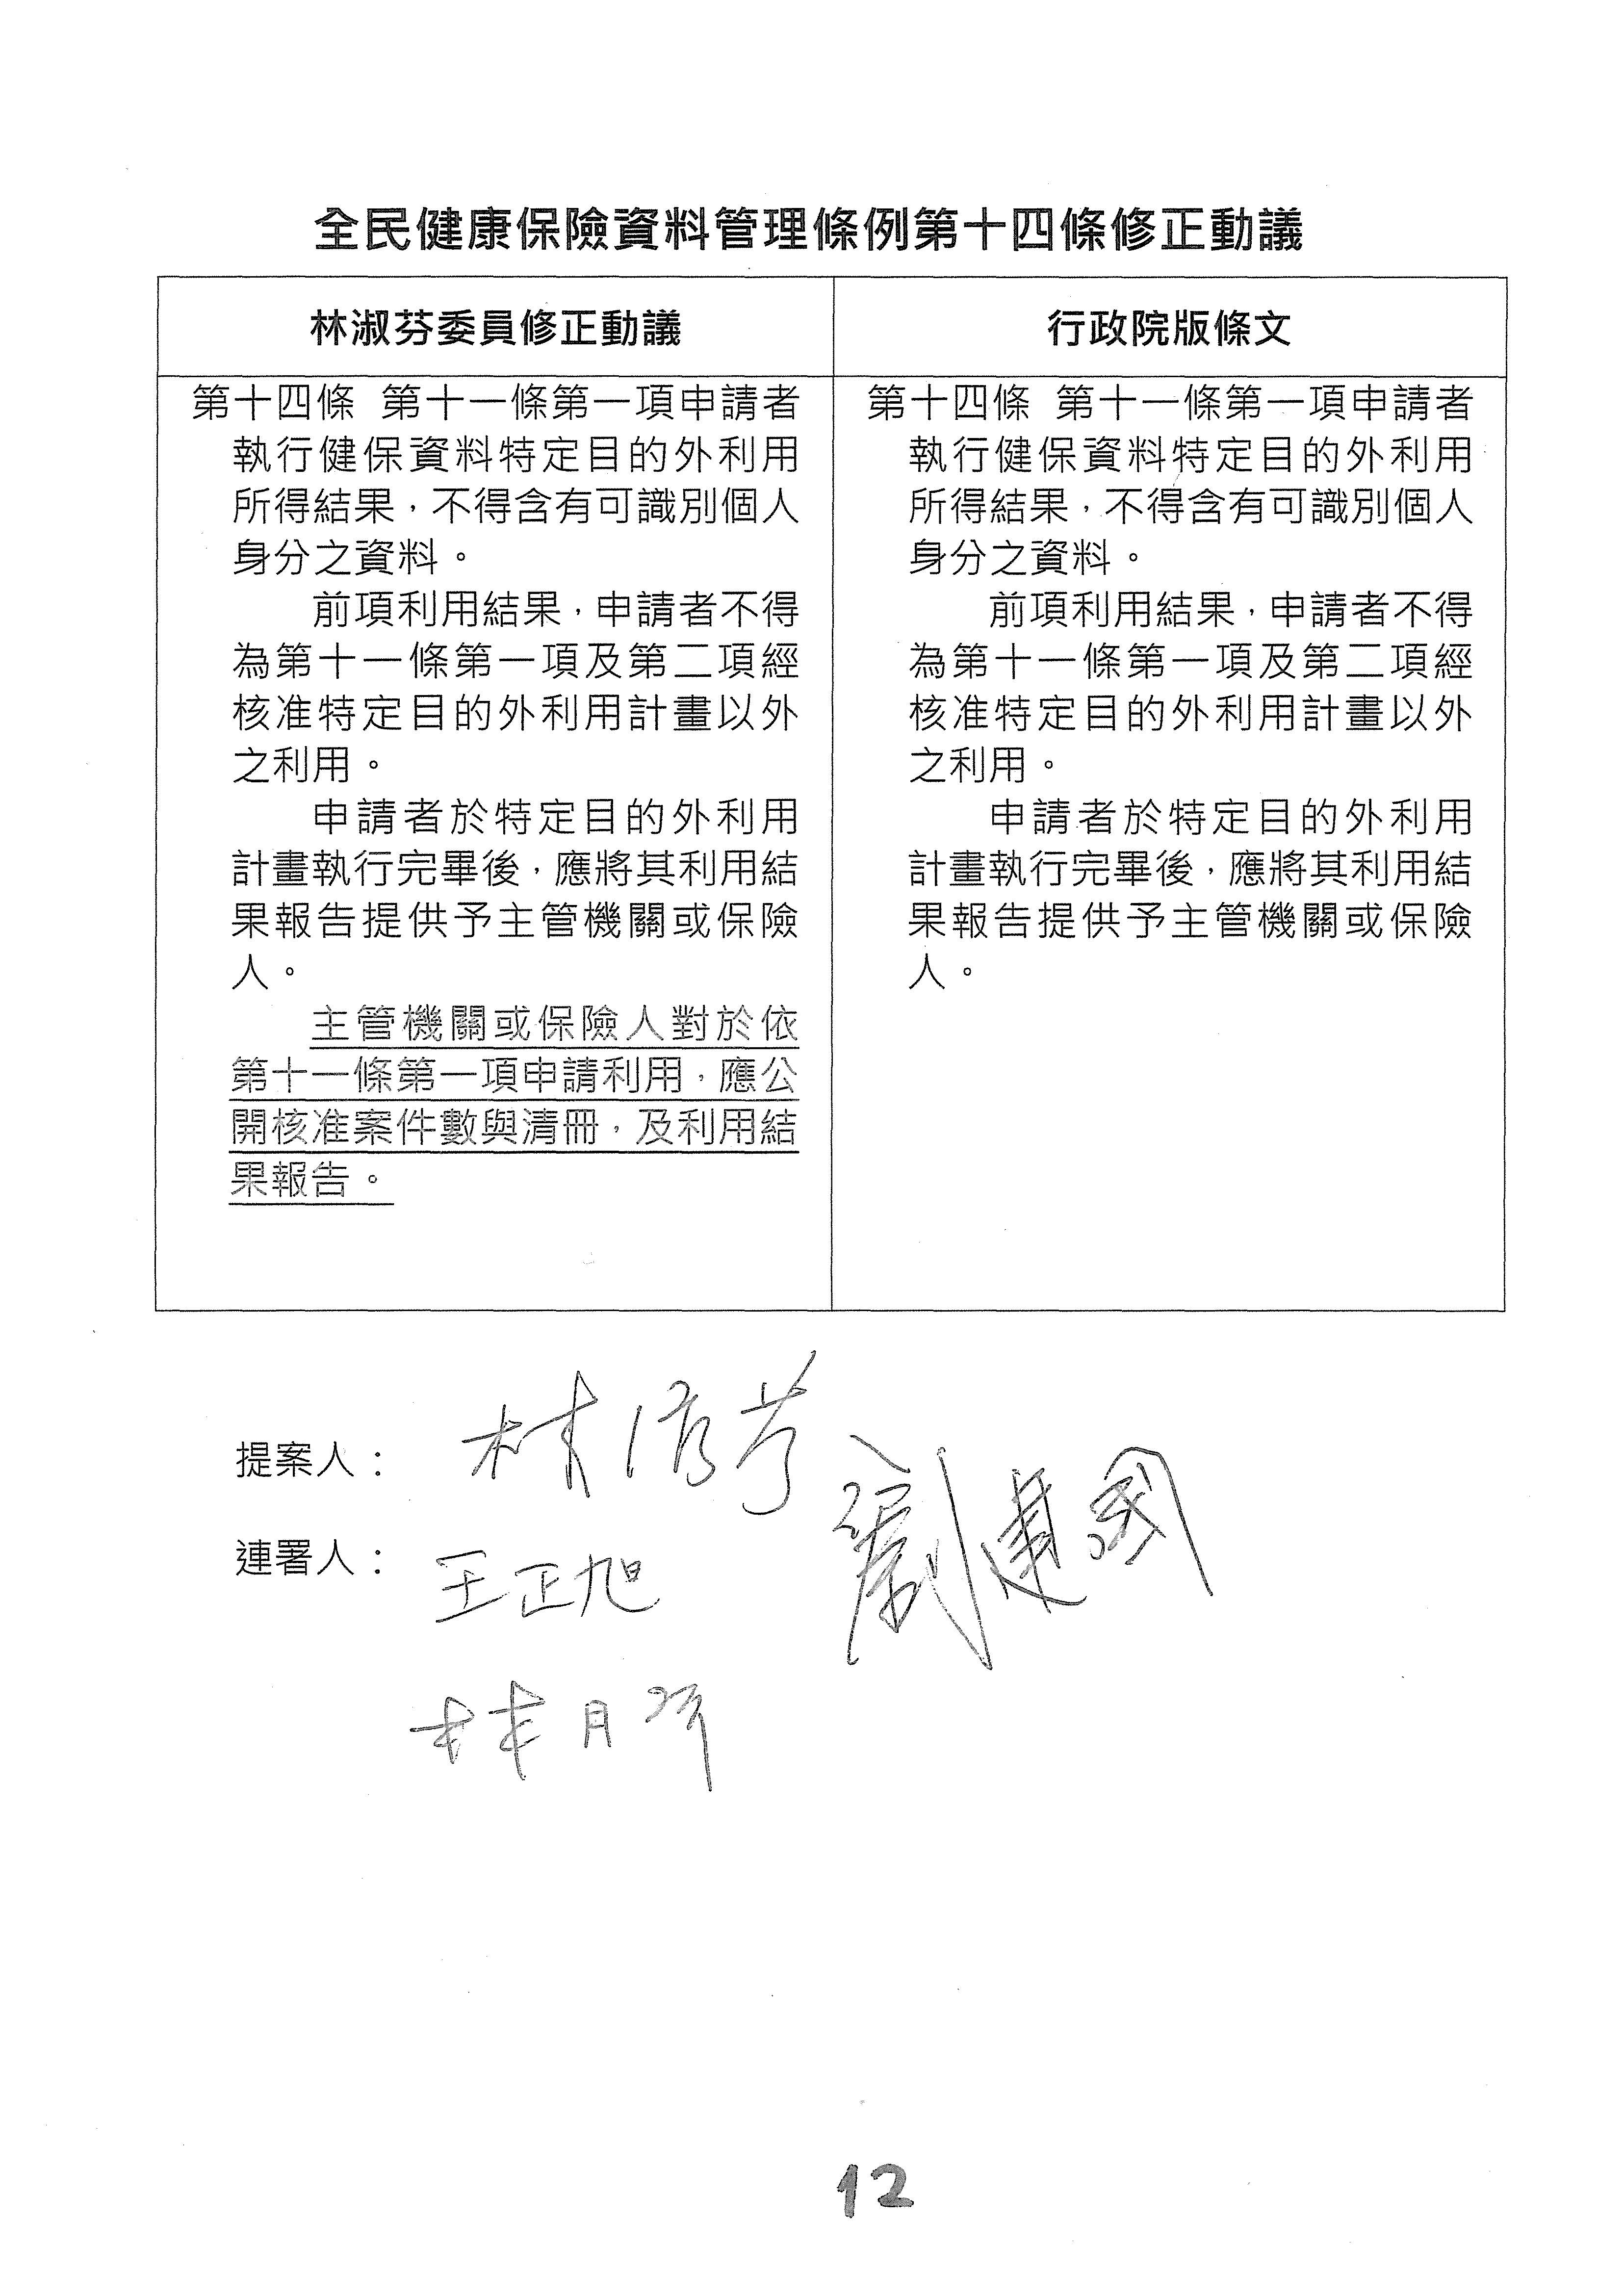 全民健康保險資料管理條例第十四條修正動議
林淑芬委員修正動議
第十四條 第十一條第一項申請者
執行健保資料特定目的外利用
所得結果，不得含有可識別個人
身分之資料。
前項利用結果，申請者不得
為第十一條第一項及第二項經
核准特定目的外利用計畫以外
之利用。
申請者於特定目的外利用
計畫執行完畢後，應將其利用結
果報告提供予主管機關或保險
人。
主管機關或保險人對於依
第十一條第一項申請利用，應公
開核准案件數與清冊，及利用結
果報告。
行政院版條文
第十四條 第十一條第一項申請者
執行健保資料特定目的外利用
所得結果，不得含有可識別個人
身分之資料。
前項利用結果，申請者不得
為第十一條第一項及第二項經
核准特定目的外利用計畫以外
之利用。
申請者於特定目的外利用
計畫執行完畢後，應將其利用結
果報告提供予主管機關或保險
人。
提案人：林淑芬
連署人：王正旭 劉建國
林月琴
12